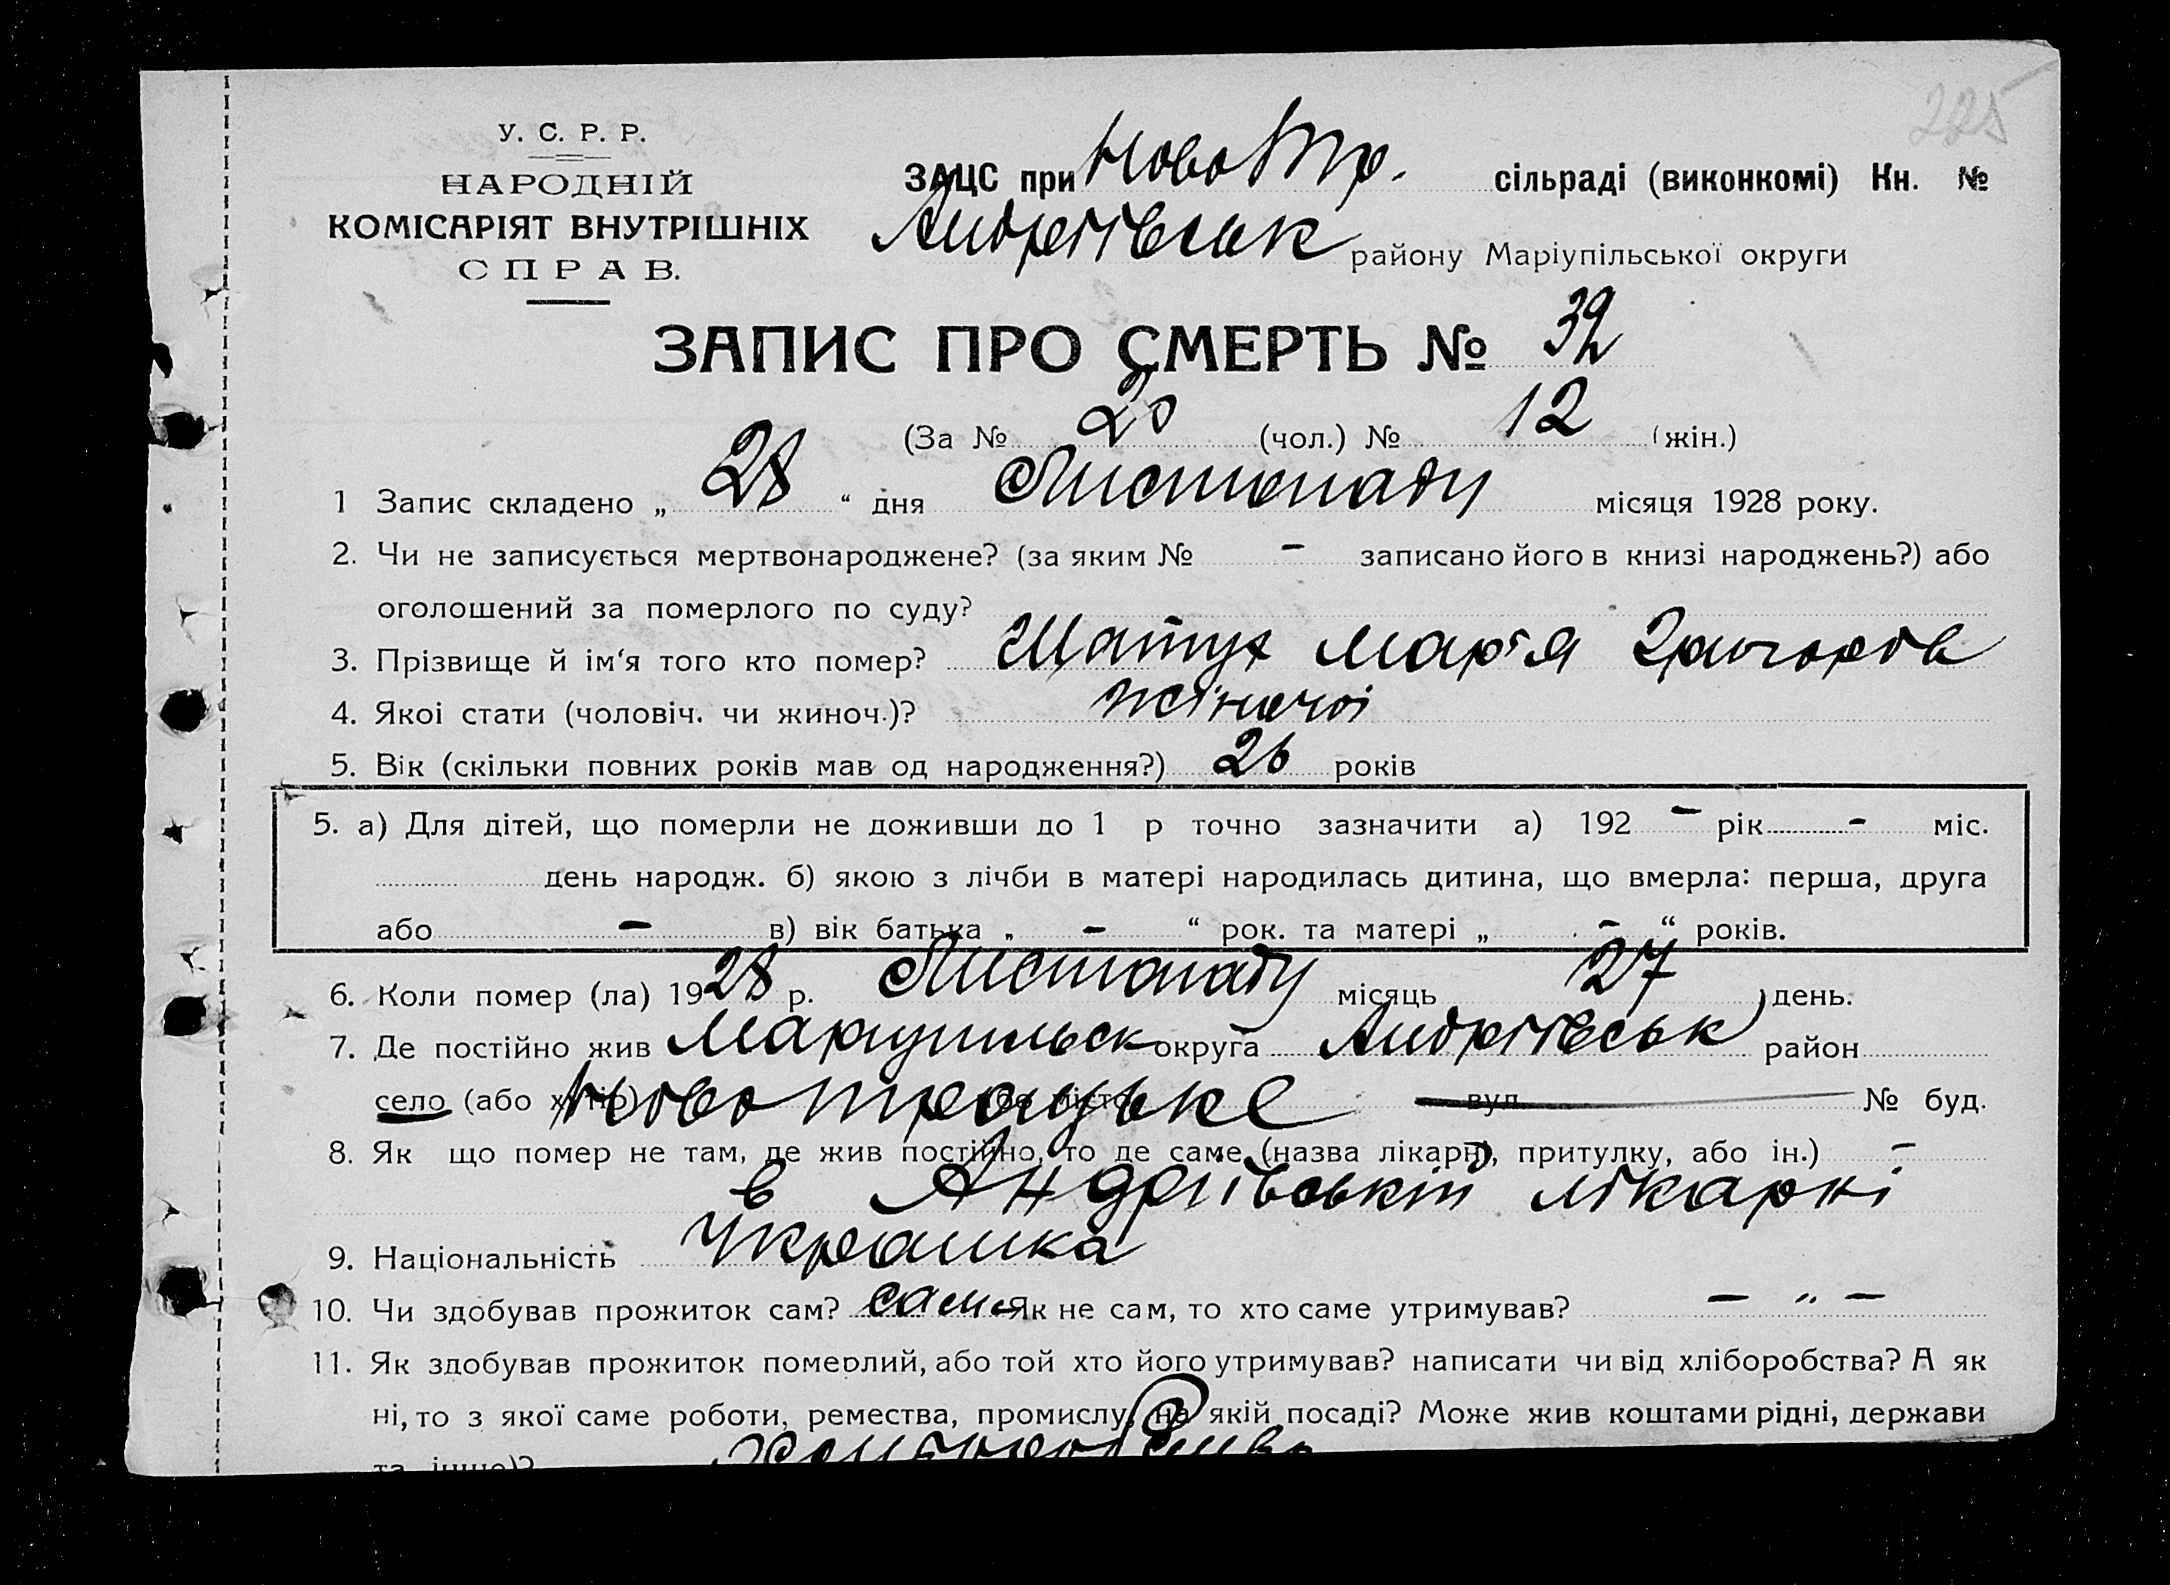 225
У. С. Р. Р.
НАРОДНІЙ
КОМІСАРІЯТ ВНУТРІШНІХ
СПРАВ.
ЗАЦС при НовоТр. сільраді (виконкомі) Кн. №
Андріївськ району Маріупільської округи
ЗАПИС ПРО СМЕРТЬ № 32
(За № 20 (чол.) № 12 (жін.)
1 Запис складено „ 28 “ дня Листопаду місяця 1928 року.
2. Чи не записується мертвонароджене? (за яким № – записано його в книзі народжень?) або
оголошений за померлого по суду?
3. Прізвище й ім‘я того кто помер? Шапух Марія Григорів
4. Якої стати (чоловіч. чи жиноч.)? жіночої
5. Вік (скільки повних років мав од народження?) 26 років
5. а) Для дітей, що померли не доживши до 1 р точно зазначити а) 192 – рік – міс.
день народж. б) якою з лічби в матері народилась дитина, що вмерла: перша, друга
або – в) вік батька „ – “ рок. та матері „ – “ років.
6. Коли помер (ла) 1928 р. Листопаду місяць 27 день.
7. Де постійно жив Маріупільск округа Андріївськ район
село (або хутір) Новотроцьке або місто вул. № буд.
8. Як що помер не там, де жив постійно, то де саме (назва лікарні, притулку, або ін.) –
в Андріївській лікарні
9. Національність Українка
10. Чи здобував прожиток сам? сама Як не сам, то хто саме утримував? – „ –
11. Як здобував прожиток померлий, або той хто його утримував? написати чи від хліборобства? А як
ні, то з якої саме роботи, ремества, промислу, на якій посаді? Може жив коштами рідні, держави
та інше)?